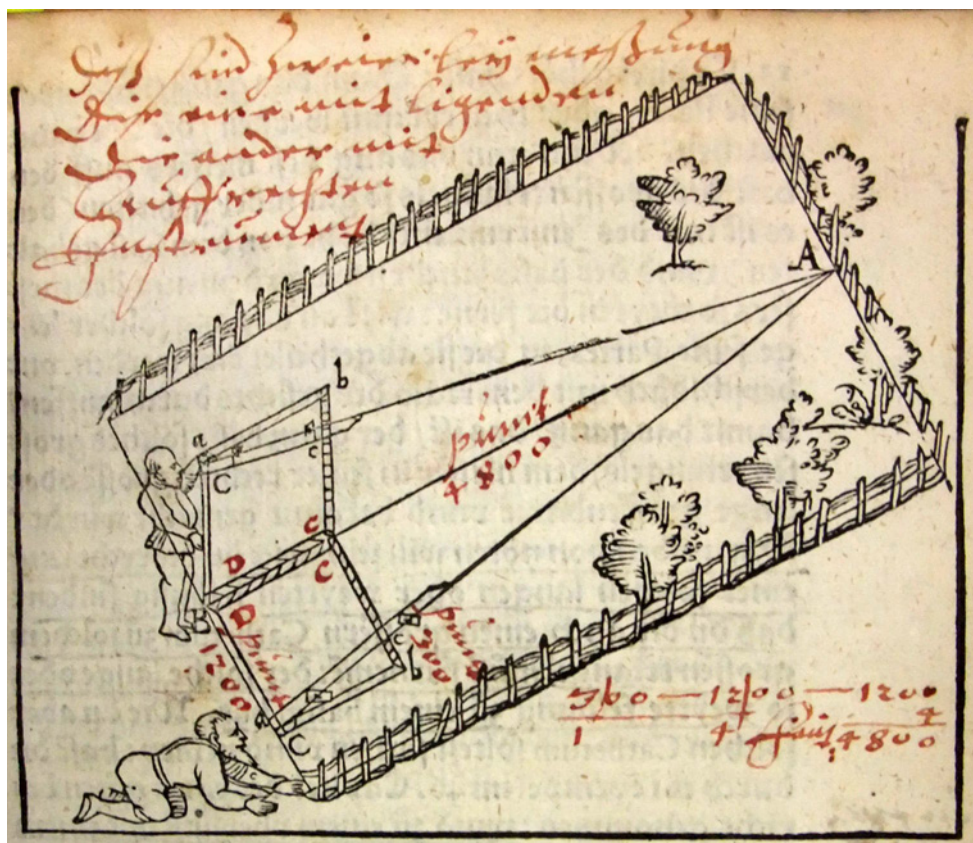 Diß sind zweierley meßung
die eine mit ligenden
die ander mit
auffrechten
Instrument
A
b
a
c
punct
4800
C
D
C
C
B
D
punct
1200
punct
300
c
b
a
C
3|00 — 12|00 — 1200
1
4
4
facit 4800